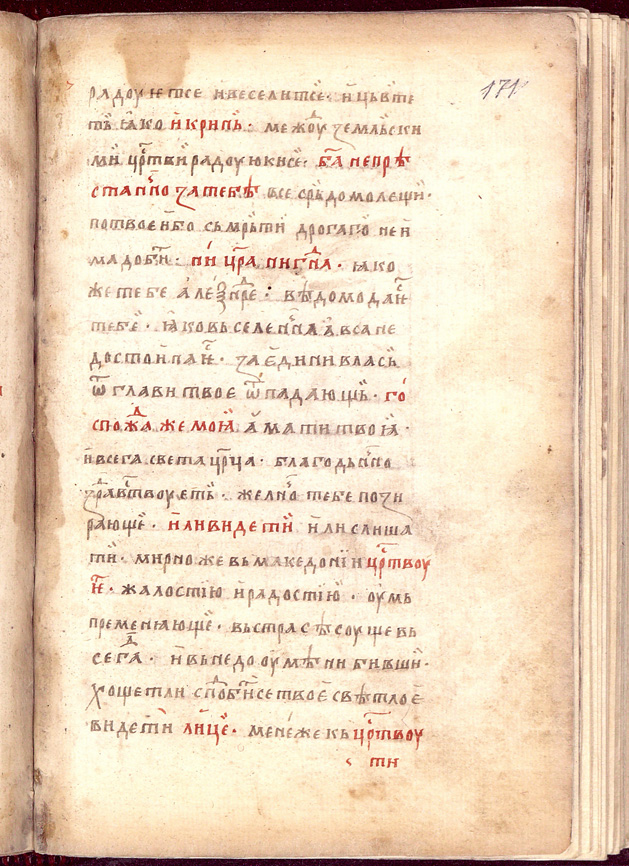 171
радоуютсе и веселитсе · и цьвте
ть ꙗко и кринь · междоу земльски
ми црⷭтви и радоую се · ба непрѣ
станно за тебѣ все срьдо молещи ·
по твоеи бо сьмрьти дрогаго не и
мадобнⷭи · ни цра ни гⷭна · ꙗко
же тебе алеѯⷩдре · вѣдомо да ⷭи
тебѣ · ꙗко вьселенна а вса не
достоина ⷭи · за едини влась
ѿ глави твое ѿпадающи · го
спожⷣа же моꙗ а мати твоꙗ ·
и всега света црца · благодьнно
здравⷭтвоуеть · желно тебе пози
рающе · или видети или слиша
ти · мирно же вь македонїи црⷭтвоу
ⷭи · жалостїю и радостїю · оумь
пременяюще · вь страсѣ соуще вь
сегⷣа · и вь недооумѣни бивши ·
хощет ли сподⷪбити се твое свѣтлое
видети лице · мене же кь црⷭтвоу
ти